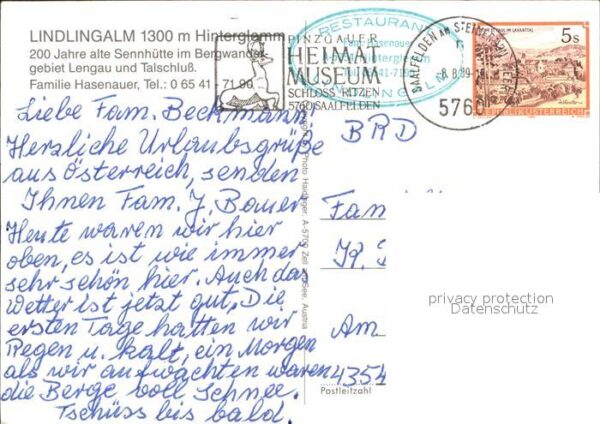 LINDLINGALM 1300 m Hinterglemm
200 Jahre alte Sennhütte im Bergwander-
gebiet Lengau und Talschluß.
Familie Hasenauer, Tel.: 0 65 41 - 71 90
PINZGAUER
HEIMAT
MUSEUM
SCHLOSS RITZEN
5760 SAALFELDEN
RESTAURANT
Hasenauer
Hinterglemm
SAALFELDEN AM STEINERNEN MEER
8.8.89
5760
5 S
REPUBLIK ÖSTERREICH
Liebe Fam. Beckmann!
Herzliche Urlaubsgrüße
aus Österreich, senden
Ihnen Fam. J. Bauer
Heute waren wir hier
oben, es ist wie immer
sehr schön hier. Auch das
Wetter ist jetzt gut, Die
ersten Tage hatten wir
Regen u. kalt, ein Morgen
als wir aufwachten waren
die Berge voll Schnee.
Tschüss bis bald.
Photo Haidinger, A-5700 Zell am See, Austria
BRD
Fam
Am
4354
Postleitzahl
privacy protection
Datenschutz